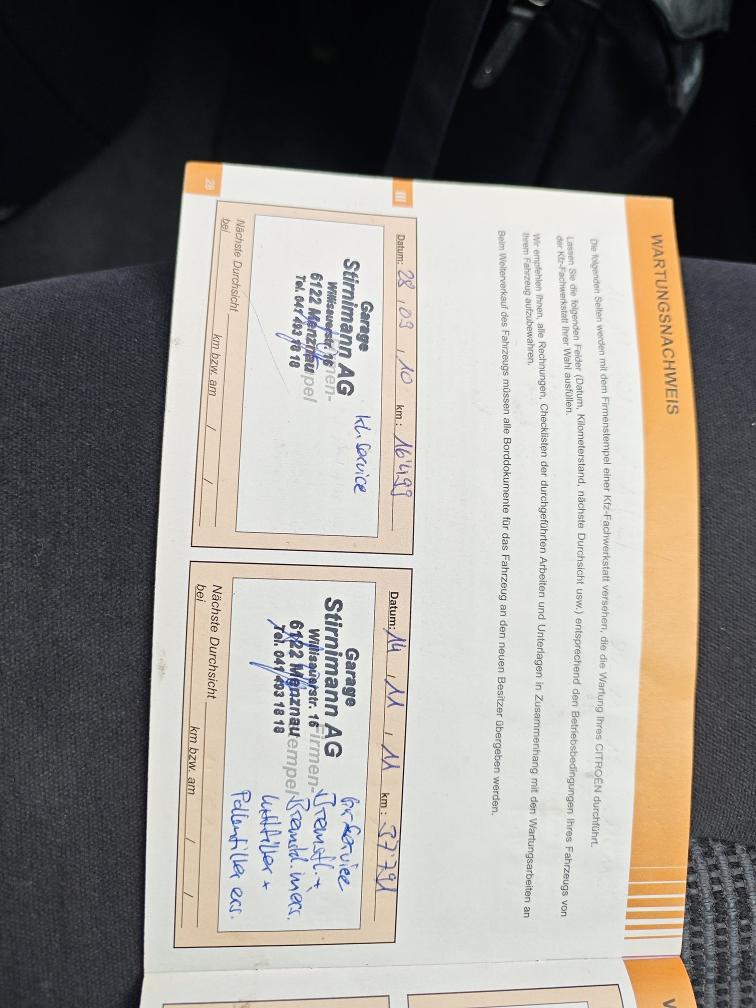 WARTUNGSNACHWEIS
Die folgenden Seiten werden mit dem Firmenstempel einer Kfz-Fachwerkstatt versehen, die die Wartung Ihres CITROËN durchführt.
Lassen Sie die folgenden Felder (Datum, Kilometerstand, nächste Durchsicht usw.) entsprechend den Betriebsbedingungen Ihres Fahrzeugs von
der Kfz-Fachwerkstatt Ihrer Wahl ausfüllen.
Wir empfehlen Ihnen, alle Rechnungen, Checklisten der durchgeführten Arbeiten und Unterlagen in Zusammenhang mit den Wartungsarbeiten an
Ihrem Fahrzeug aufzubewahren.
Beim Weiterverkauf des Fahrzeugs müssen alle Borddokumente für das Fahrzeug an den neuen Besitzer übergeben werden.
III
Datum: 28 / 09 / 10 km: 16'499
kl. Service
Garage
Stirnimann AG
Willisauerstr. 16
6122 Menznau
Tel. 041 493 18 18
Nächste Durchsicht
bei km bzw. am / /
28
Datum: 14 / 11 / 11 km: 37'791
Garage
Stirnimann AG
Willisauerstr. 16
6122 Menznau
Tel. 041 493 18 18
Firmen-
stempel
Service
Bremsfl. +
Luftfilter +
Pollenfilter ers.
Nächste Durchsicht
bei km bzw. am / /